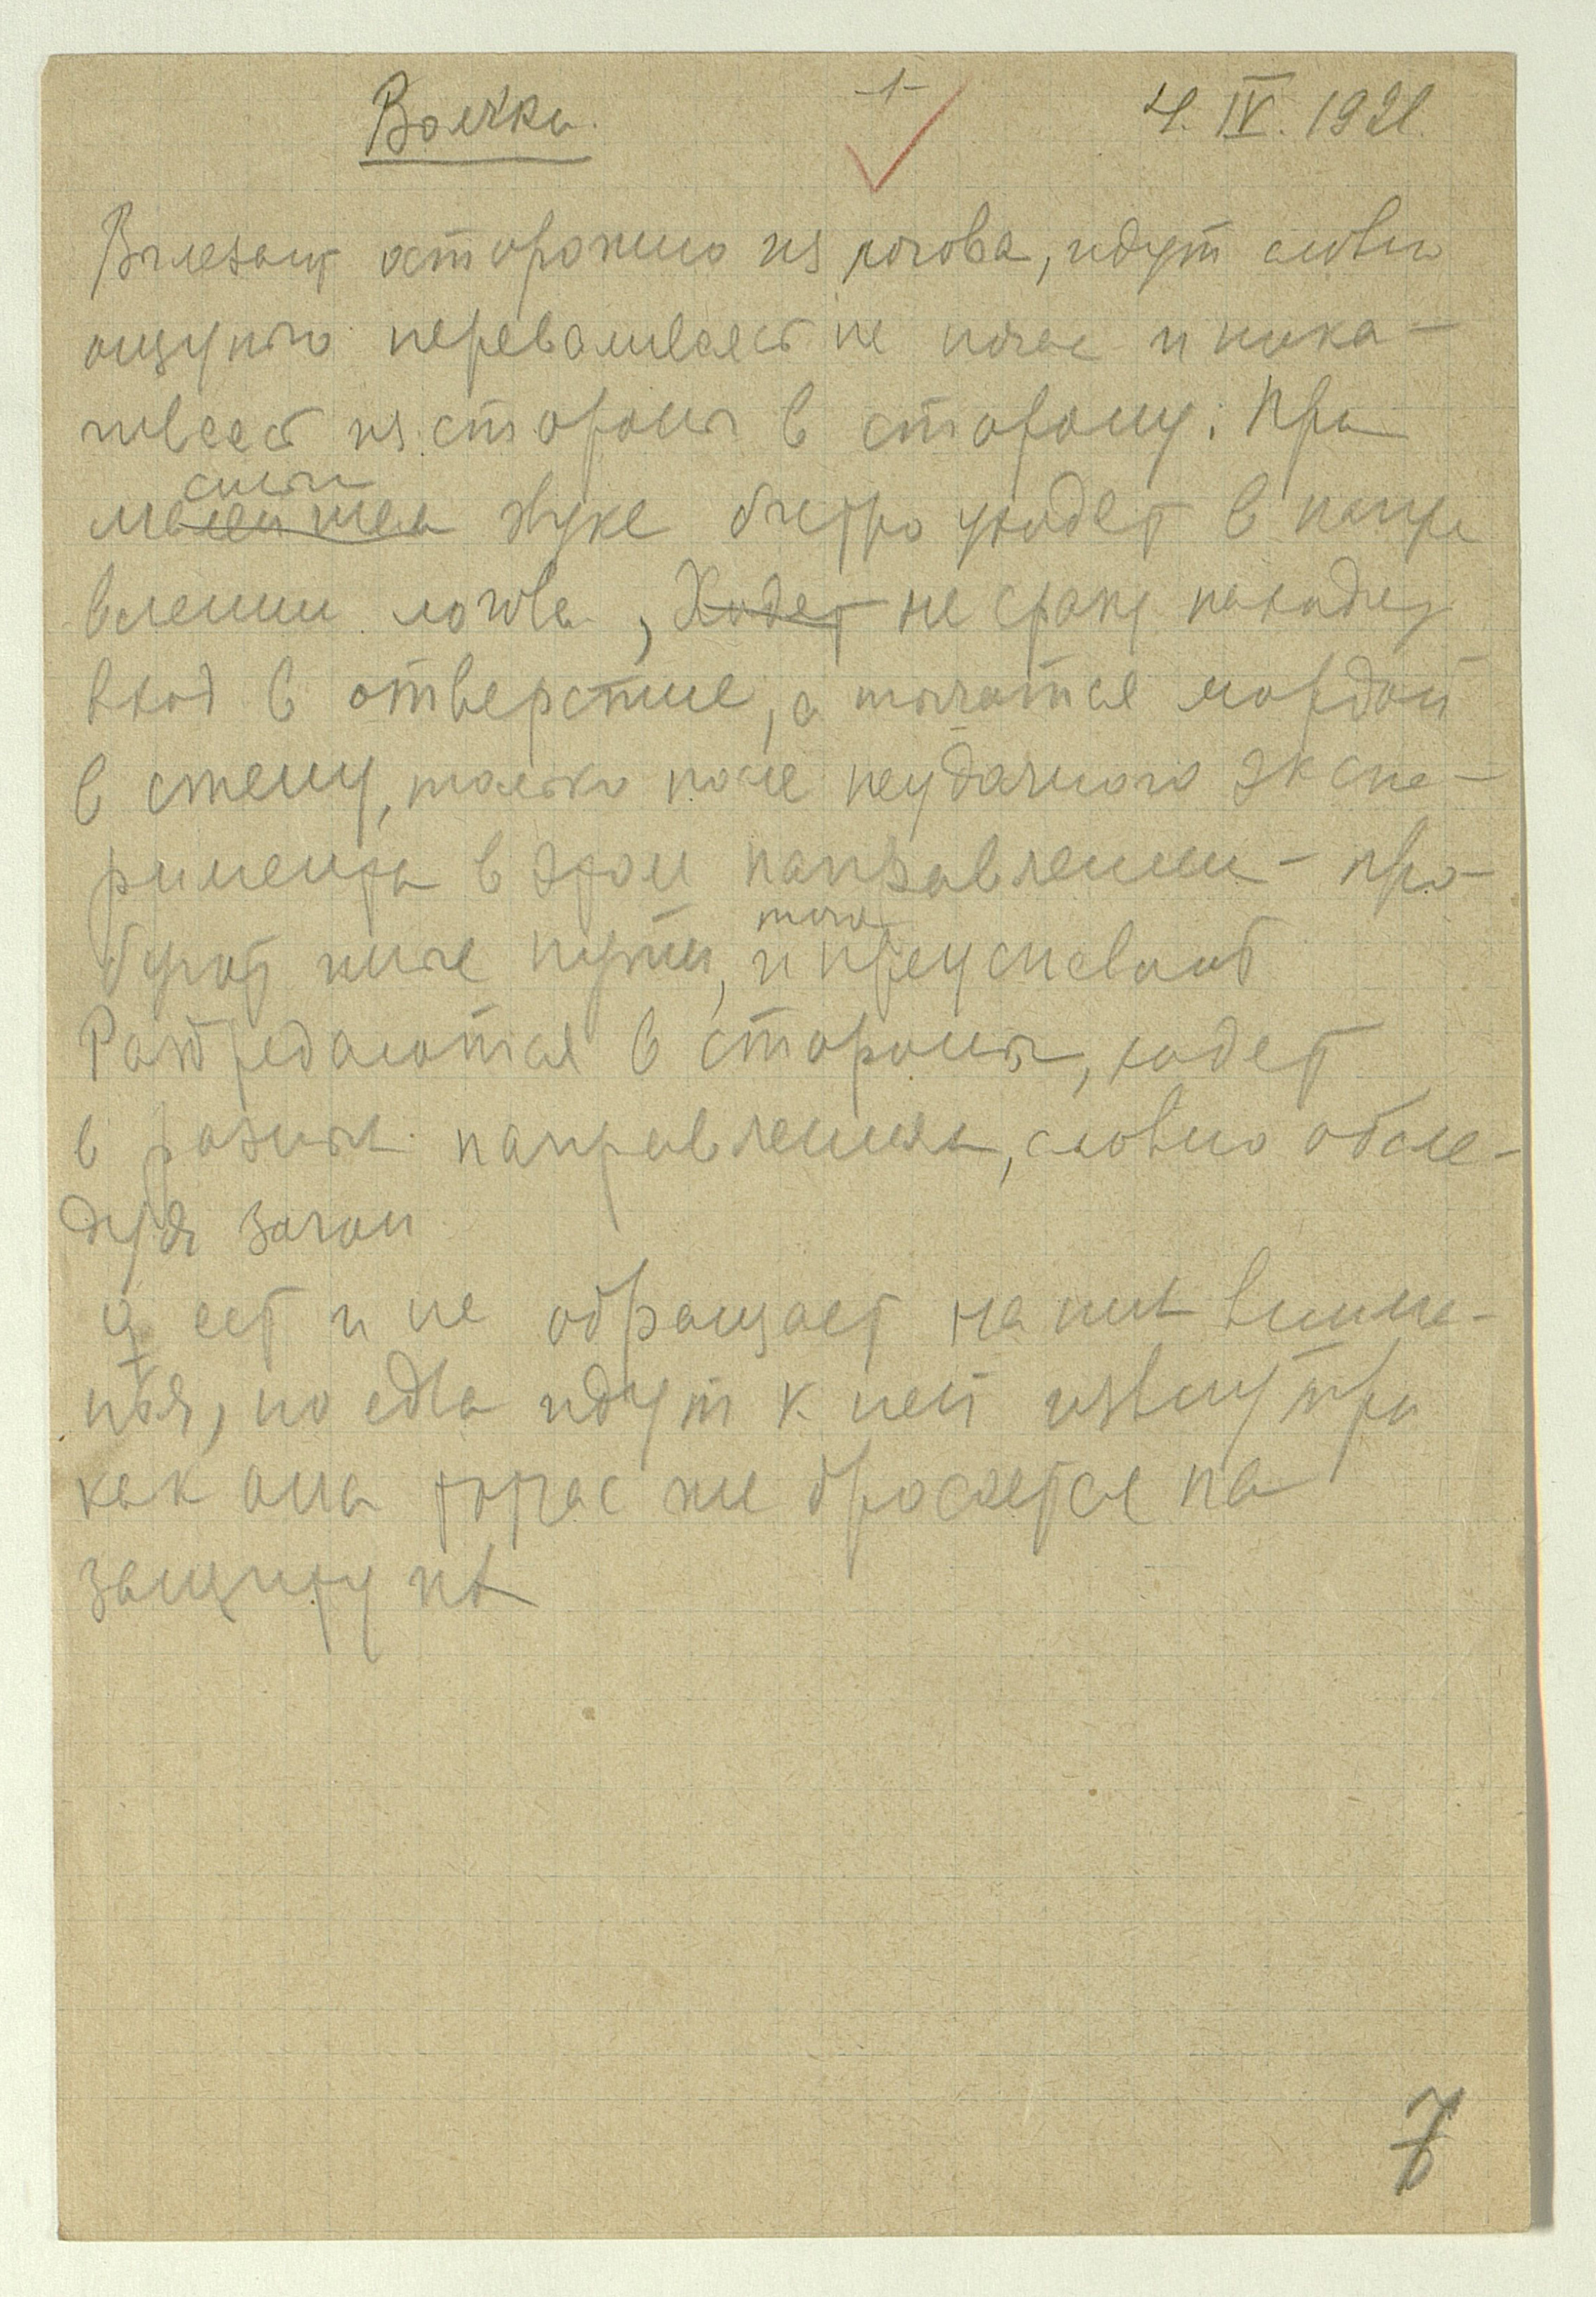 Волчки. -1- 4. IV. 1921.
Вылезают осторожно из логова, идут словно
ощупью переваливаясь на ногах и пока-
чиваясь из стороны в сторону. При
сильн
малейшем звуке быстро уходят в напра
влении логова, Ходят не сразу находят
вход в отверстие, а тычатся мордой
в стену, только после неудачного экспе-
римента в этом направлении - про-
буют иные пути, и
тогда преуспевают
Разбредаются в стороны, ходят
в разных направлениях, словно обсле-
дуя загон
♀ ест и не обращает на них внима-
ния, но едва идут к ней извнутри
как она тотчас же бросается на
защиту их
7